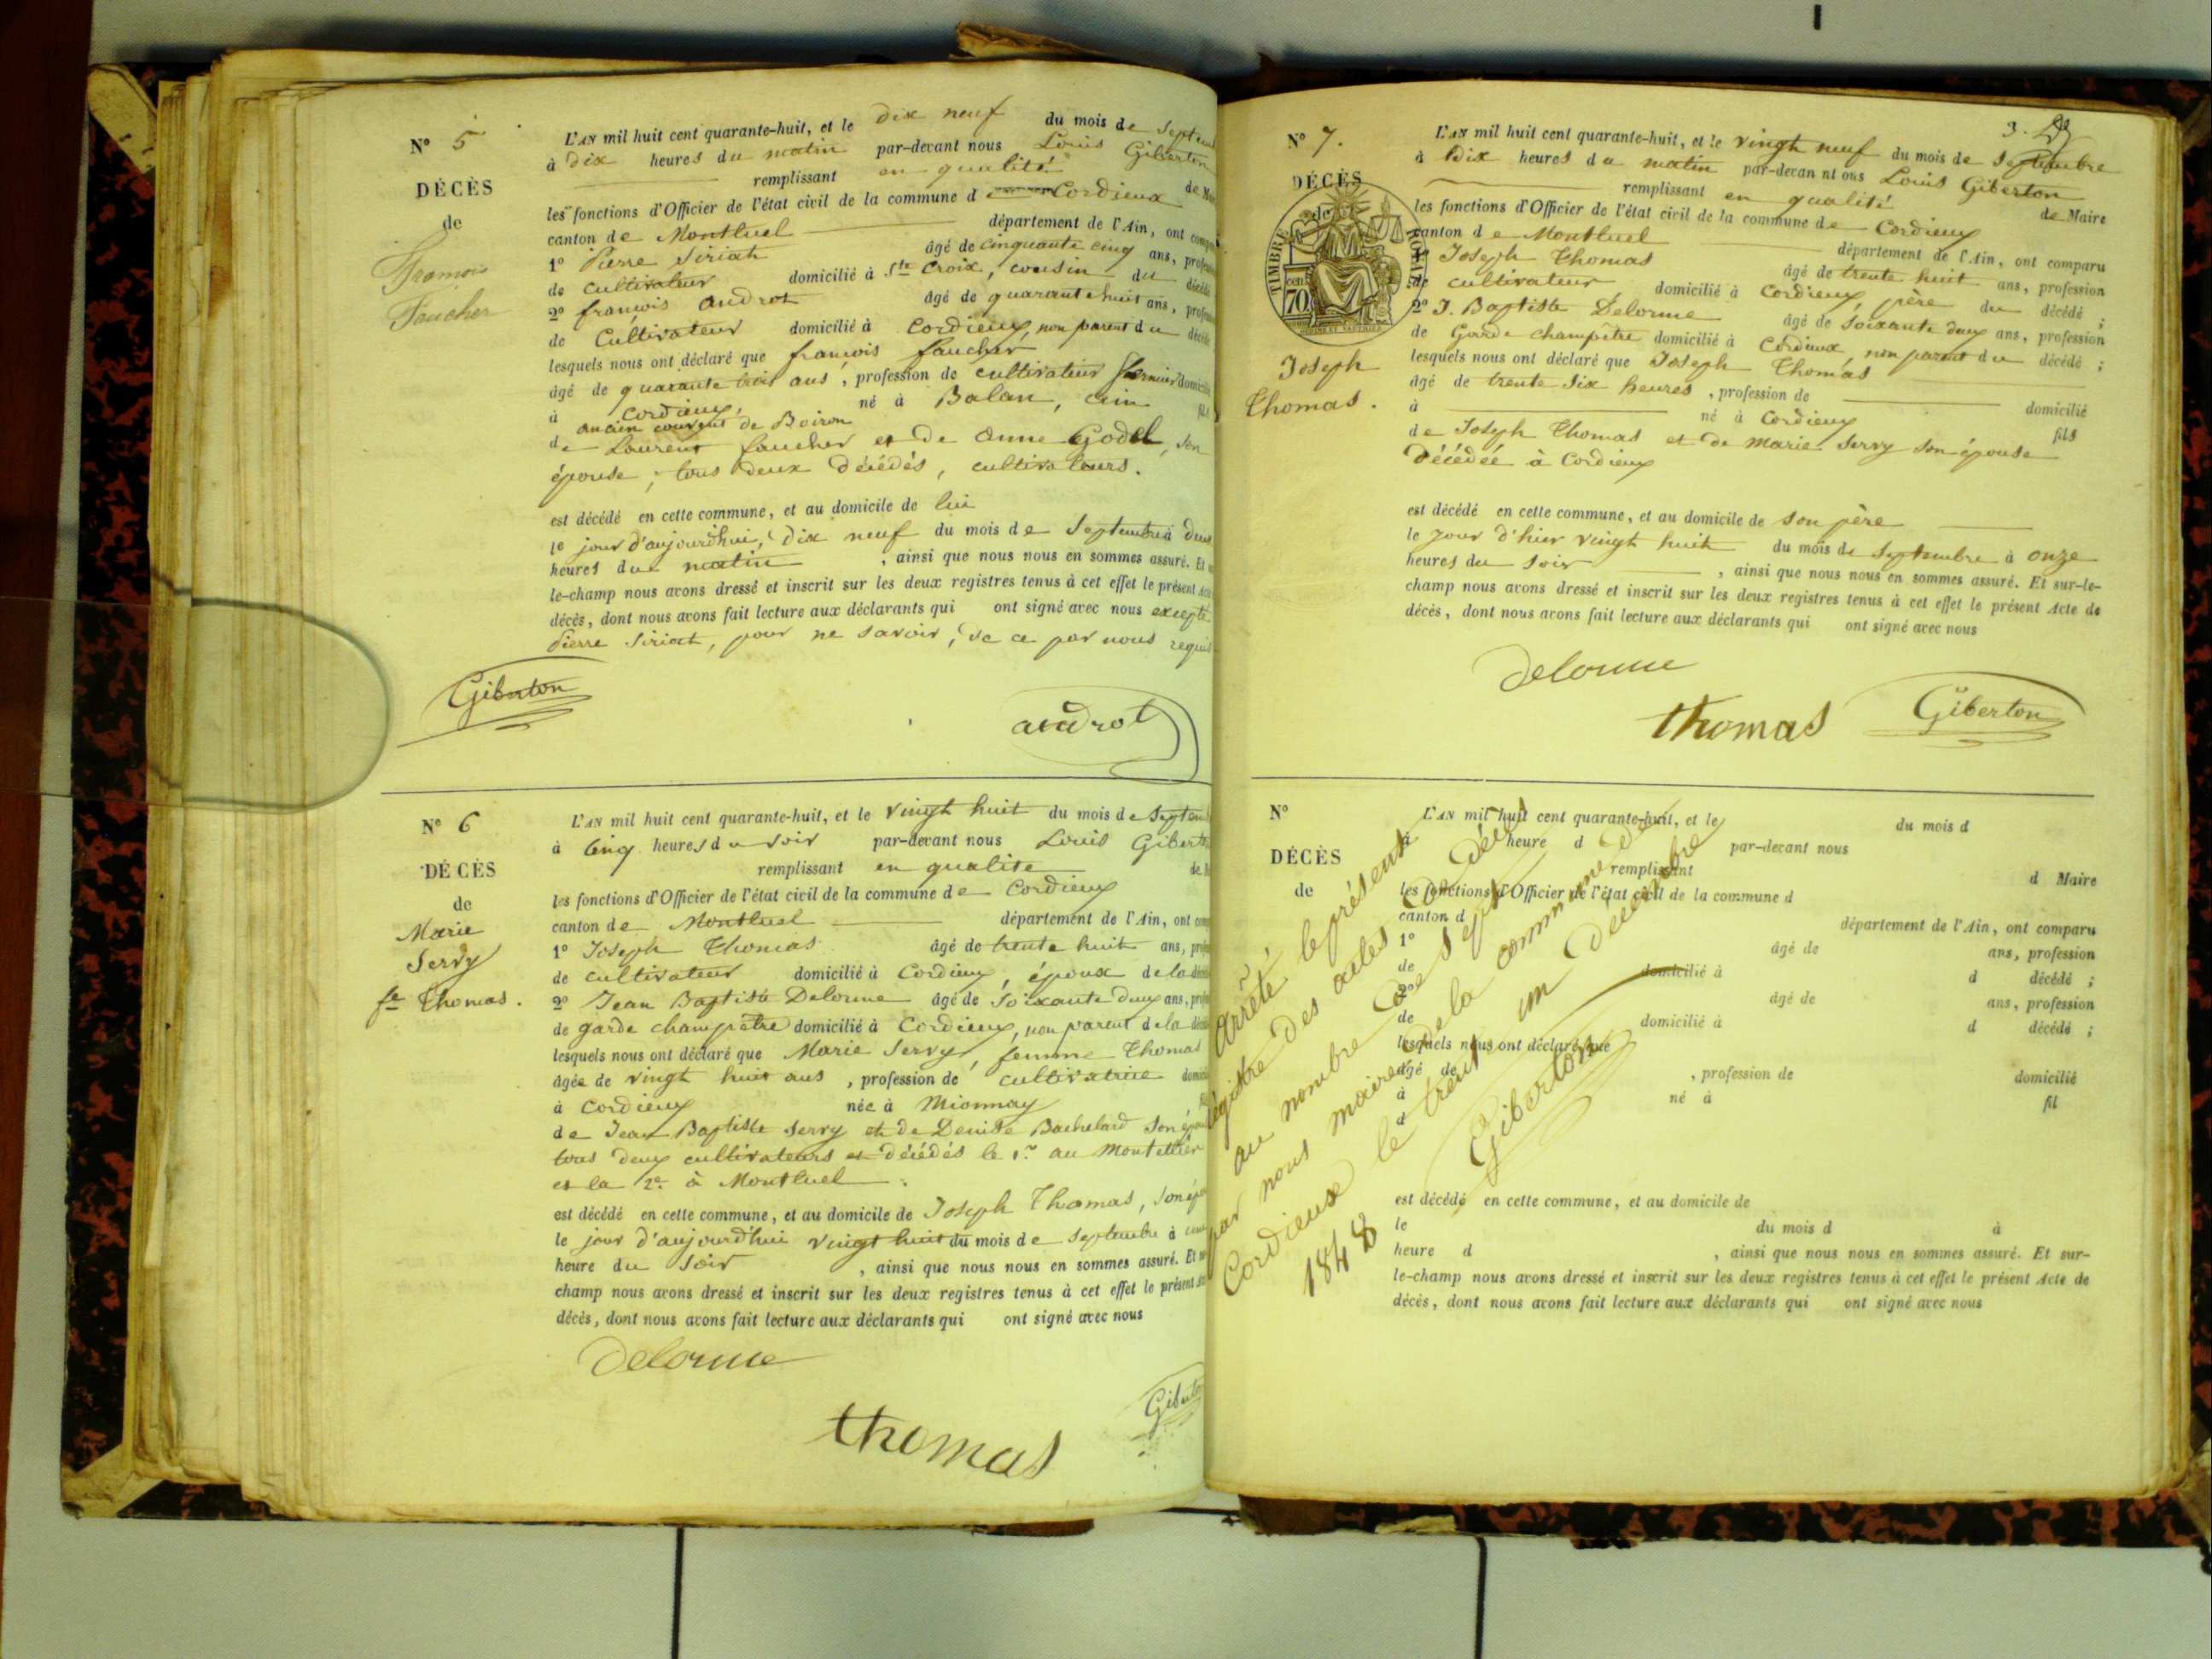 N° 5
DÉCÈS
de
François
Faucher
L'AN mil huit cent quarante-huit, et le dix neuf du mois de Septem
à dix heures du matin par-devant nous Louis Giberton
remplissant en qualité de
les fonctions d'Officier de l'état civil de la commune d Cordieux
canton de Montluel département de l'Ain, ont
1° Pierre Siriat âgé de cinquante cinq ans,
de cultivateur domicilié à Ste Croix, cousin du décédé
2° françois androt âgé de quarante huit ans,
de Cultivateur domicilié à Cordieux, non parent du
lesquels nous ont déclaré que françois faucher
âgé de quarante trois ans, profession de cultivateur fermier
à Cordieux, né à Balan,
ancien couvent de Boiron
de Laurent faucher et de anne Godel, son
épouse, tous deux décédés, cultivateurs.
est décédé en cette commune, et au domicile de lui
le jour d'aujourd'hui, dix neuf du mois de Septembre à
heures du matin, ainsi que nous nous en sommes assuré. Et
le-champ nous avons dressé et inscrit sur les deux registres tenus à cet effet le présent
décès, dont nous avons fait lecture aux déclarants qui ont signé avec nous excepté
Pierre Siriat, pour ne savoir, de ce par nous requis
Giberton
androt
N° 6
DÉCÈS
de
Marie
Servy
fe Thomas.
L'AN mil huit cent quarante-huit, et le vingt huit du mois de Septem
à cinq heures du soir par-devant nous Louis
remplissant en qualité
les fonctions d'Officier de l'état civil de la commune de Cordieux
canton de Montluel département de l'Ain, ont
1° Joseph Thomas âgé de trente huit ans,
de cultivateur domicilié à Cordieux, époux de la
2° Jean Baptiste Delorme âgé de Soixante deux ans,
de garde champêtre domicilié à Cordieux, non parent de la
lesquels nous ont déclaré que Marie Servy, femme Thomas
âgée de vingt huit ans, profession de cultivatrice
à Cordieux née à Mionnay
de Jean Baptiste Servy et de Denise Bachelard Son
tous deux cultivateurs et décédés le 1er au Montellier
et la 2e à Montluel.
est décédé en cette commune, et au domicile de Joseph Thomas,
le jour d'aujourd'hui vingt huit du mois de Septembre à
heure du Soir, ainsi que nous nous en sommes assuré. Et
champ nous avons dressé et inscrit sur les deux registres tenus à cet effet le présent
décès, dont nous avons fait lecture aux déclarants qui ont signé avec nous
Delorme
thomas
3.
N° 7.
DÉCÈS
de
TIMBRE ROYAL
70 cen
Joseph
Thomas.
L'AN mil huit cent quarante-huit, et le vingt neuf du mois de Septembre
à Dix heures du matin par-devan nt ous Louis Giberton
remplissant en qualité de Maire
les fonctions d'Officier de l'état civil de la commune de Cordieux
canton de Montluel département de l'Ain, ont comparu
Joseph Thomas âgé de trente huit ans, profession
de cultivateur domicilié à Cordieux, père du décédé ;
2° J. Baptiste Delorme âgé de Soixante deux ans, profession
de Garde champêtre domicilié à Cordieux, non parent du décédé ;
lesquels nous ont déclaré que Joseph Thomas
âgé de trente Six heures, profession de domicilié
à né à Cordieux fils
de Joseph Thomas et de Marie Servy Son épouse
Décédée à Cordieux
est décédé en cette commune, et au domicile de son père
le jour d'hier vingt huit du mois de Septembre à onze
heures du soir, ainsi que nous nous en sommes assuré. Et sur-le-
champ nous avons dressé et inscrit sur les deux registres tenus à cet effet le présent Acte de
décès, dont nous avons fait lecture aux déclarants qui ont signé avec nous
Delorme
thomas
Giberton
N°
DÉCÈS
de
L'AN mil huit cent quarante-huit, et le du mois d
à heure d par-devant nous
remplissant d Maire
les fonctions d'Officier de l'état civil de la commune d
canton d département de l'Ain, ont comparu
1° âgé de ans, profession
de domicilié à d décédé ;
2° âgé de ans, profession
de domicilié à d décédé ;
lesquels nous ont déclaré que
âgé de , profession de domicilié
à né à fil
d
est décédé en cette commune, et au domicile de
le du mois d à
heure d , ainsi que nous nous en sommes assuré. Et sur-
le-champ nous avons dressé et inscrit sur les deux registres tenus à cet effet le présent Acte de
décès, dont nous avons fait lecture aux déclarants qui ont signé avec nous
Arrêté le présent
registre des actes de décès
au nombre de Sept
par nous maire de la commune de
Cordieux le trent un Décembre
1848
Giberton